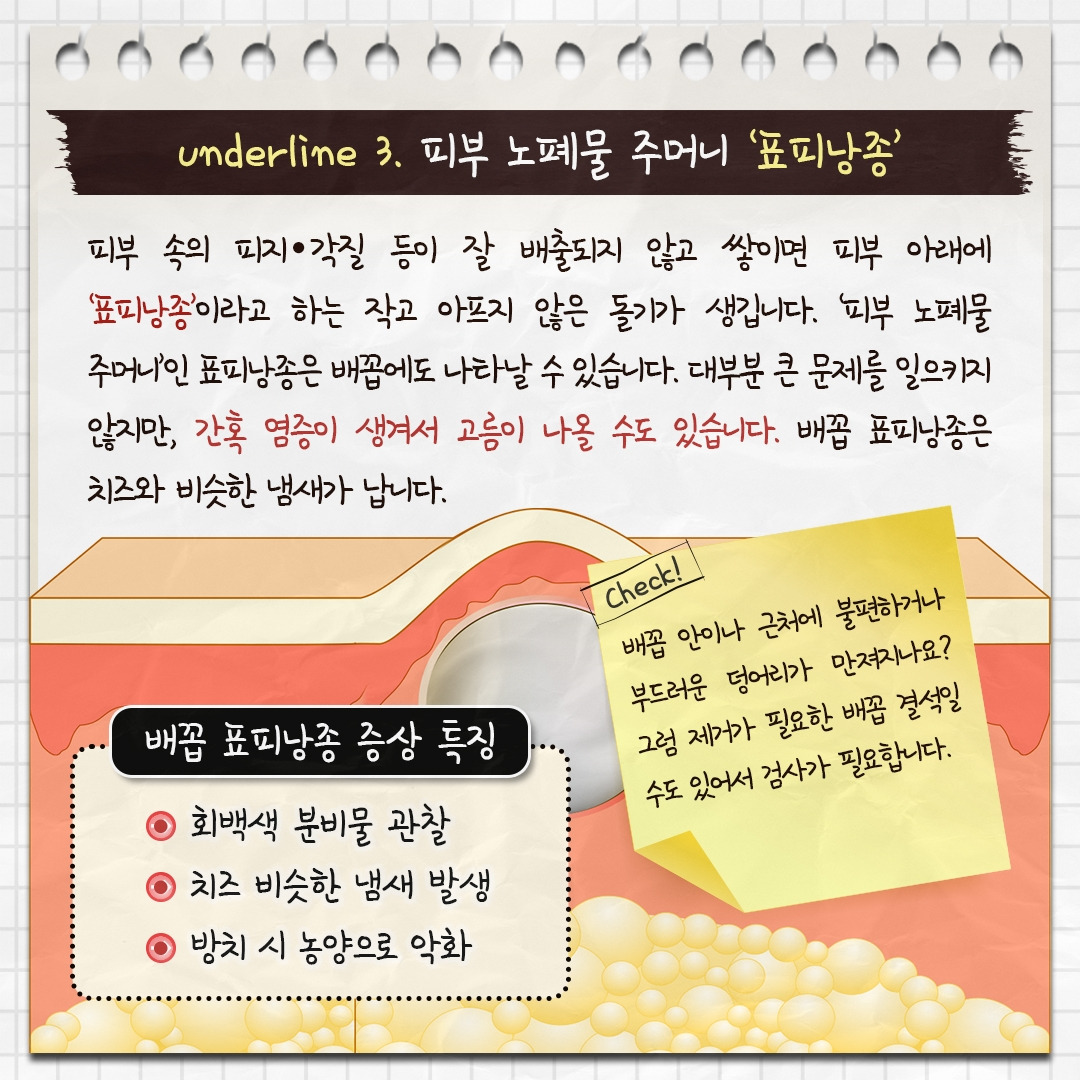 underline 3. 피부 노폐물 주머니 ‘표피낭종’
피부 속의 피지•각질 등이 잘 배출되지 않고 쌓이면 피부 아래에
‘표피낭종’이라고 하는 작고 아프지 않은 돌기가 생깁니다. ‘피부 노폐물
주머니’인 표피낭종은 배꼽에도 나타날 수 있습니다. 대부분 큰 문제를 일으키지
않지만, 간혹 염증이 생겨서 고름이 나올 수도 있습니다. 배꼽 표피낭종은
치즈와 비슷한 냄새가 납니다.
Check!
배꼽 안이나 근처에 불편하거나
부드러운 덩어리가 만져지나요?
그럼 제거가 필요한 배꼽 결석일
수도 있어서 검사가 필요합니다.
배꼽 표피낭종 증상 특징
회백색 분비물 관찰
치즈 비슷한 냄새 발생
방치 시 농양으로 악화